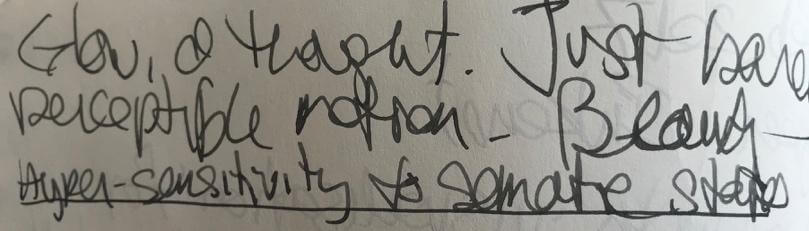 Just bare
perceptible motion - Beauty -
Hyper-sensitivity to somatic states